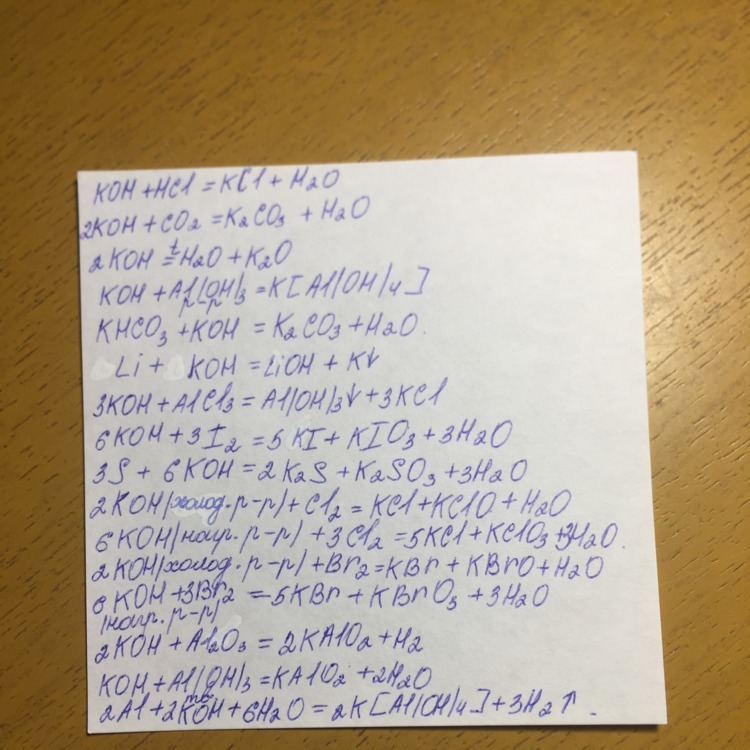 KOH + HCl = KCl + H2O
2KOH + CO2 = K2CO3 + H2O
2KOH =t H2O + K2O
KOH + Al(OH)3 р-р = K[Al(OH)4]
KHCO3 + KOH = K2CO3 + H2O.
Li + KOH = LiOH + K↓
3KOH + AlCl3 = Al(OH)3↓ + 3KCl
6KOH + 3I2 = 5KI + KIO3 + 3H2O
3S + 6KOH = 2K2S + K2SO3 + 3H2O
2KOH(холод. р-р) + Cl2 = KCl + KClO + H2O
6KOH(нагр. р-р) + 3Cl2 = 5KCl + KClO3 + 3H2O.
2KOH(холод. р-р) + Br2 = KBr + KBrO + H2O
6KOH + 3Br2 = 5KBr + KBrO3 + 3H2O
(нагр. р-р)
2KOH + Al2O3 = 2KAlO2 + H2
KOH + Al(OH)3 тв = KAlO2 + 2H2O
2Al + 2KOH + 6H2O = 2K[Al(OH)4] + 3H2↑.